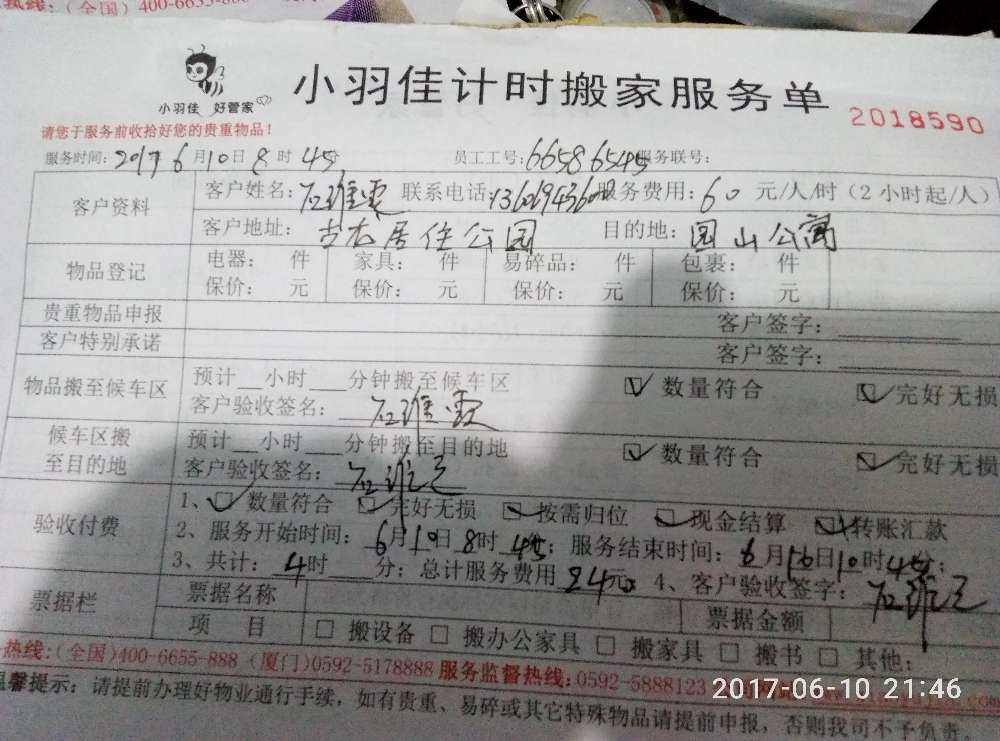 热线:(全国)400-6655-888
小羽佳 好管家
小羽佳计时搬家服务单
2018590
请您于服务前收拾好您的贵重物品!
服务时间: 2017 6月10日8时45分 员工工号: 6658 6545 服务联号:
客户资料 客户姓名: 联系电话: 服务费用: 60 元/人/时(2小时起/人)
客户地址: 古龙居住公园 目的地: 园山公寓
物品登记 电器: 件 家具: 件 易碎品: 件 包裹: 件
保价: 元 保价: 元 保价: 元 保价: 元
贵重物品申报 客户签字:
客户特别承诺 客户签字:
物品搬至候车区 预计__小时__分钟搬至候车区 数量符合 完好无损
客户验收签名:
候车区搬至目的地 预计__小时__分钟搬至目的地 数量符合 完好无损
客户验收签名:
验收付费 1、数量符合 完好无损 按需归位 现金结算 转账汇款
2、服务开始时间: 6月10日8时45; 服务结束时间: 6月10日10时45分;
3、共计: 4时__分; 总计服务费用 24元 4、客户验收签字:
票据栏 票据名称 票据金额
项 目 搬设备 搬办公家具 搬家具 搬书 其他:
热线:(全国)400-6655-888 (厦门)0592-5178888 服务监督热线:0592-5888123
温馨提示: 请提前办理好物业通行手续, 如有贵重、易碎或其它特殊物品请提前申报, 否则我司不予负责。
2017-06-10 21:46